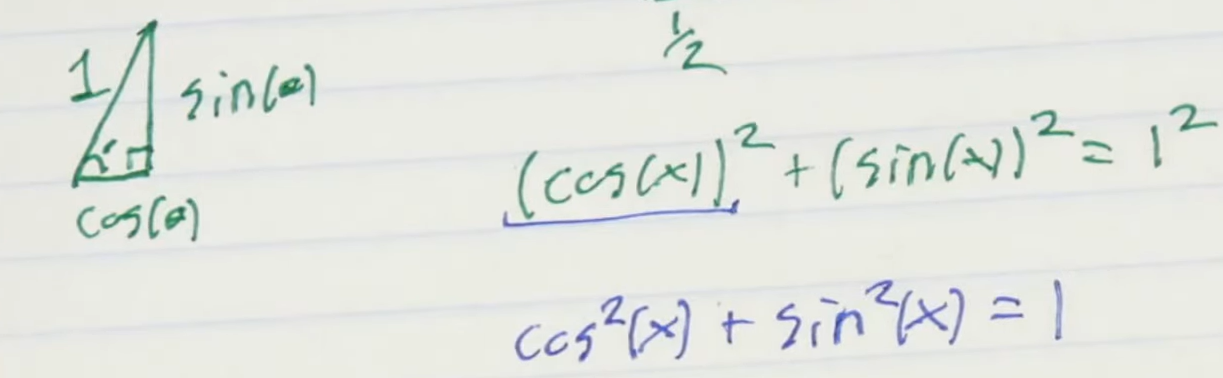 1/2
1
sin(θ)
cos(θ)
(cos(x))² + (sin(x))² = 1²
cos²(x) + sin²(x) = 1